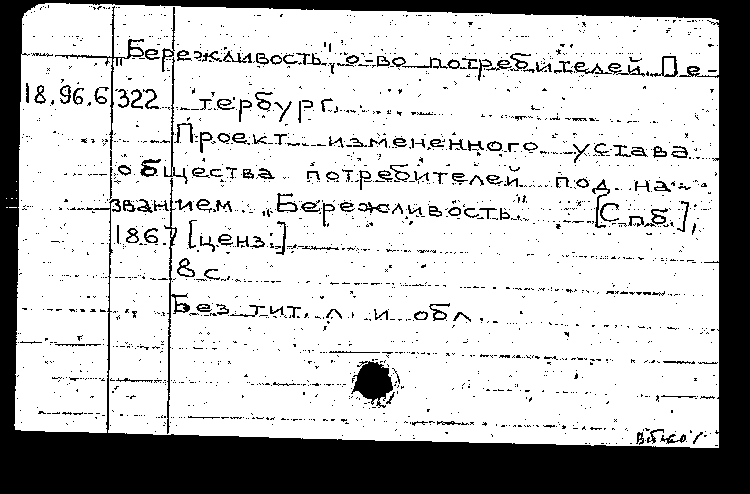 „Бережливость", о-во потребителей Пе-
18.96.6.322 тербург.
Проект измененного устава
общества потребителей под на-
званием „Бережливость" [Спб.],
1867 [ценз.].
8 с.
Без тит. л. и обл.